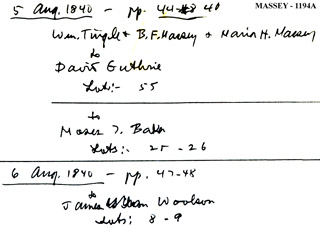 MASSEY - 1194A
5 Aug. 1840 - pp. 40
Wm. Tingle & B.F. Massey & Maria H. Massey
to
David Guthrie
Lots:- 55
to
Moses J. Baker
Lots:- 25-26
6 Aug. 1840 - pp. 47-48
to
James Woolson
Lots: 8-9